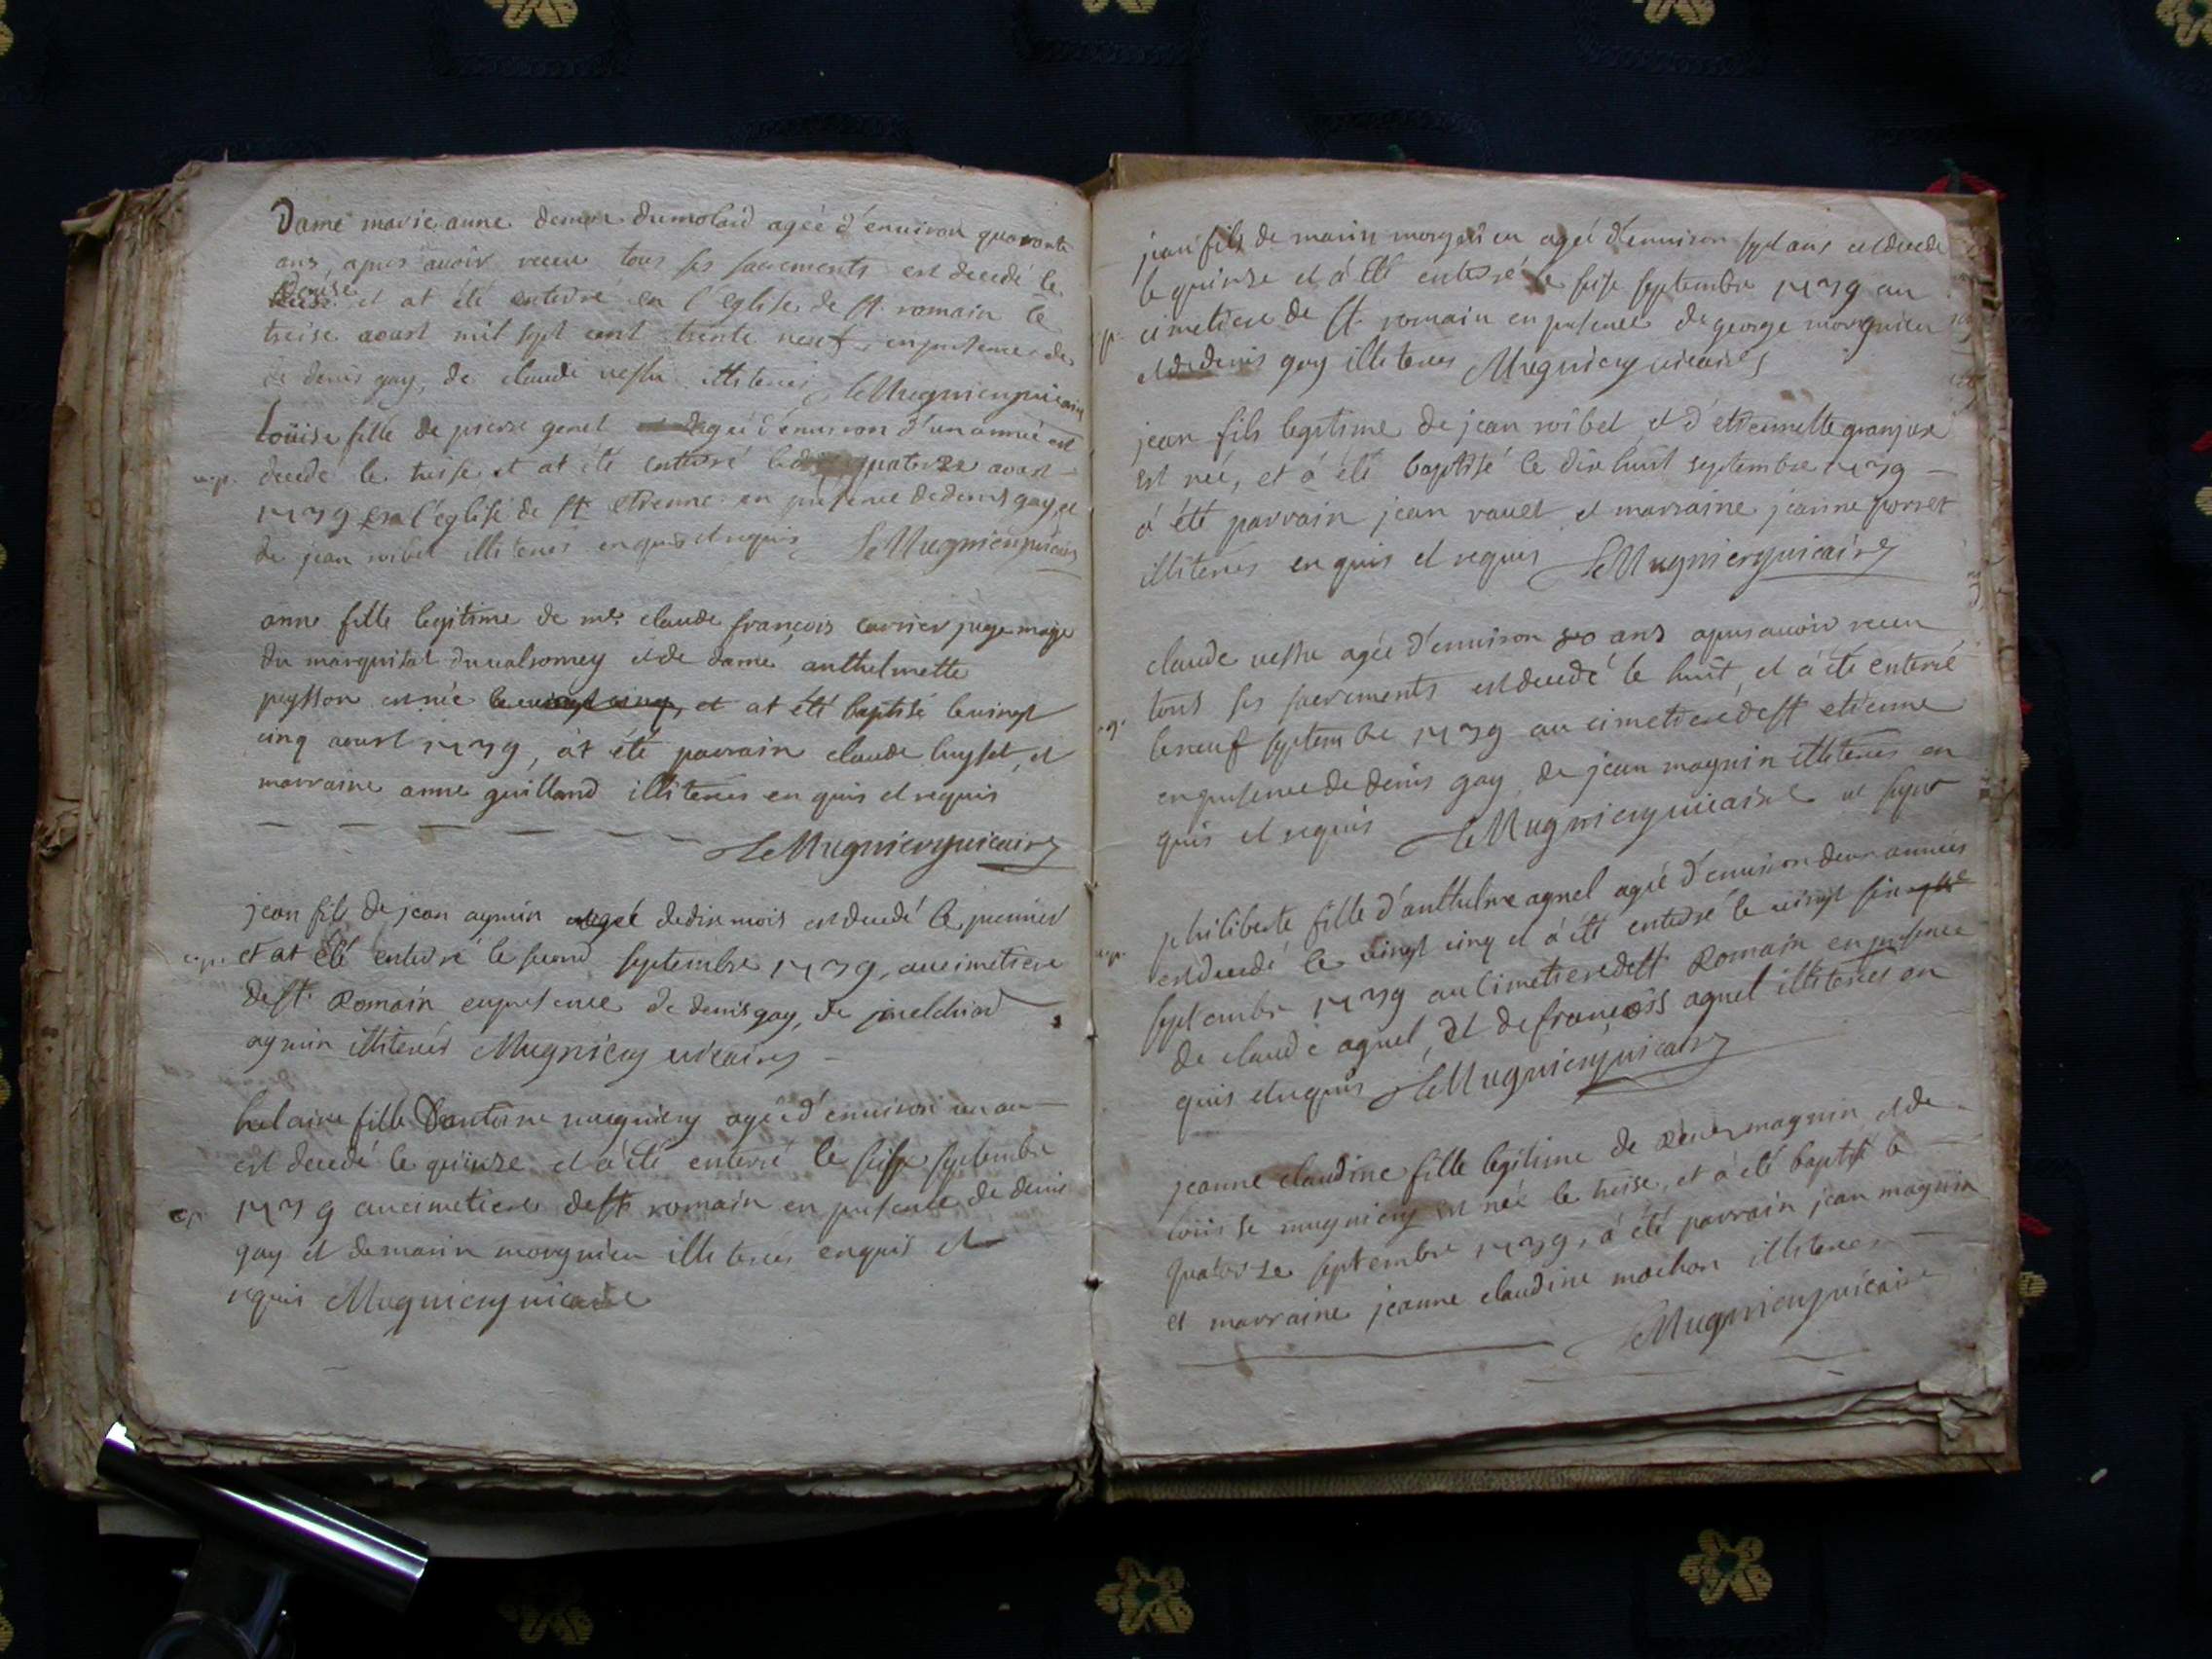 Dame marie anne demon dumolard agée d'environ quarante
ans, apres avoir receu tous ses sacrements est decedé le
douse et at été enterré en l'eglise de st. romain le
treise aoust mil sept cent trente neuf, en presence de
de denis gay, de claude vessu illiterés LeMugnieryvicaire
Loüise fille de pierre genet agée d'environ d'un année est
decedé le treise, et at été enterré le quatorze aoust
1739 en l'eglise de st etienne en presence de denis gay, et
de jean roibet illiterés enquis et requis LeMugnieryvicaire
anne fille legitime de mr. claude françois carrier juge maje
du marquisat du valromey et de dame anthelmette
peysson est née le vingt cinq, et at été baptisé le vingt
cinq aoust 1739, at été parrain claude huyset, et
marraine anne guilland illiterés en quis et requis
LeMugnieryvicaire
jean fils de jean aymin agée de dix mois est decedé le premier
n.p. et at été enterré le second septembre 1739, au cimetiere
de st. Romain en presence de denis gay, de melchiod
aymin illiterés Mugniery vicaire
helaine fille D'antoine mugniery agée d'environ un an
est decedé le quinze et a été enterré le seise septembre
1739 au cimetiere de st romain en presence de denis
gay et de marin morgnieu illiterés enquis et
requis Mugniery vicaire
jean fils de marin morgnieu agée d'environ sept ans est decedé
le quinze et à été enterré le seise septembre 1739 au
cimetiere de st. romain en presence de george morgnieu
et de denis gay illiterés Mugniery vicaire
jean fils legitime de jean roibet et d'etiennette granjeré
est née, et à été baptisé le dix huit septembre 1739
à été parrain jean ravet et marraine jeanne porret
illiterés en quis et requis LeMugnieryvicaire
claude vessu agée d'environ 80 ans apres avoir receu
tous ses sacrements est decedé le huit, et à été enterré
le neuf septembre 1739 au cimetiere de st etienne
en presence de denis gay, de jean magnin illiterés en
quis et requis LeMugnieryvicaire
philiberte fille d'anthelme agnel agée d'environ deux années
est decedé le vingt cinq et à été enterré le vingt six
septembre 1739 au cimetiere de st Romain en presence
de claude agnel, et de françois agnel illiterés en
quis et requis LeMugnieryvicaire
jeanne claudine fille legitime de René magnin et de
loüise mugniery est née le treise, et à été baptisé le
quatorze septembre 1739, à été parrain jean magnin
et marraine jeanne claudine mochon illiterés
LeMugnieryvicaire